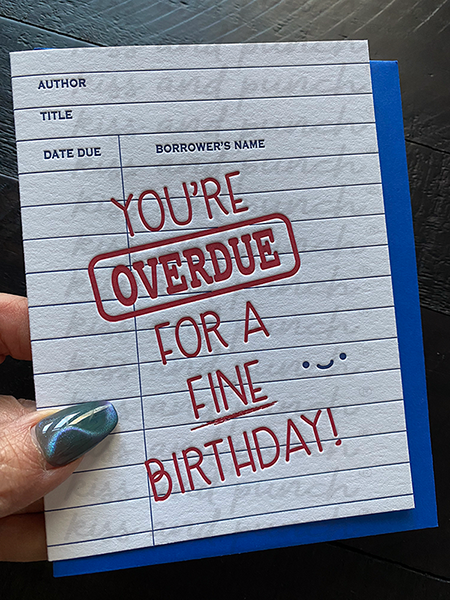 AUTHOR
TITLE
DATE DUE BORROWER'S NAME
YOU'RE
OVERDUE
FOR A
FINE
BIRTHDAY!